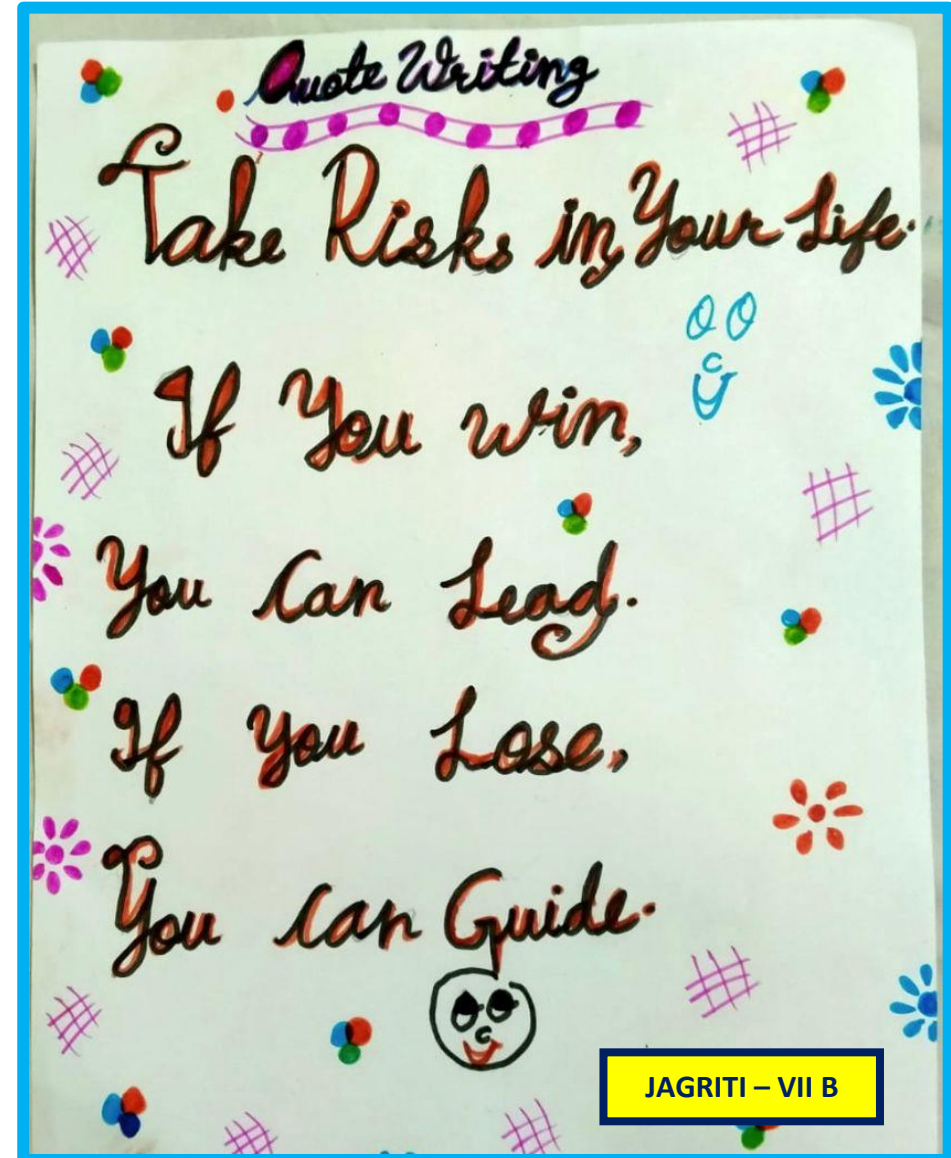 Quote Writing
Take Risks in Your Life.
If You win,
You Can Lead.
If You Lose,
You Can Guide.
JAGRITI – VII B